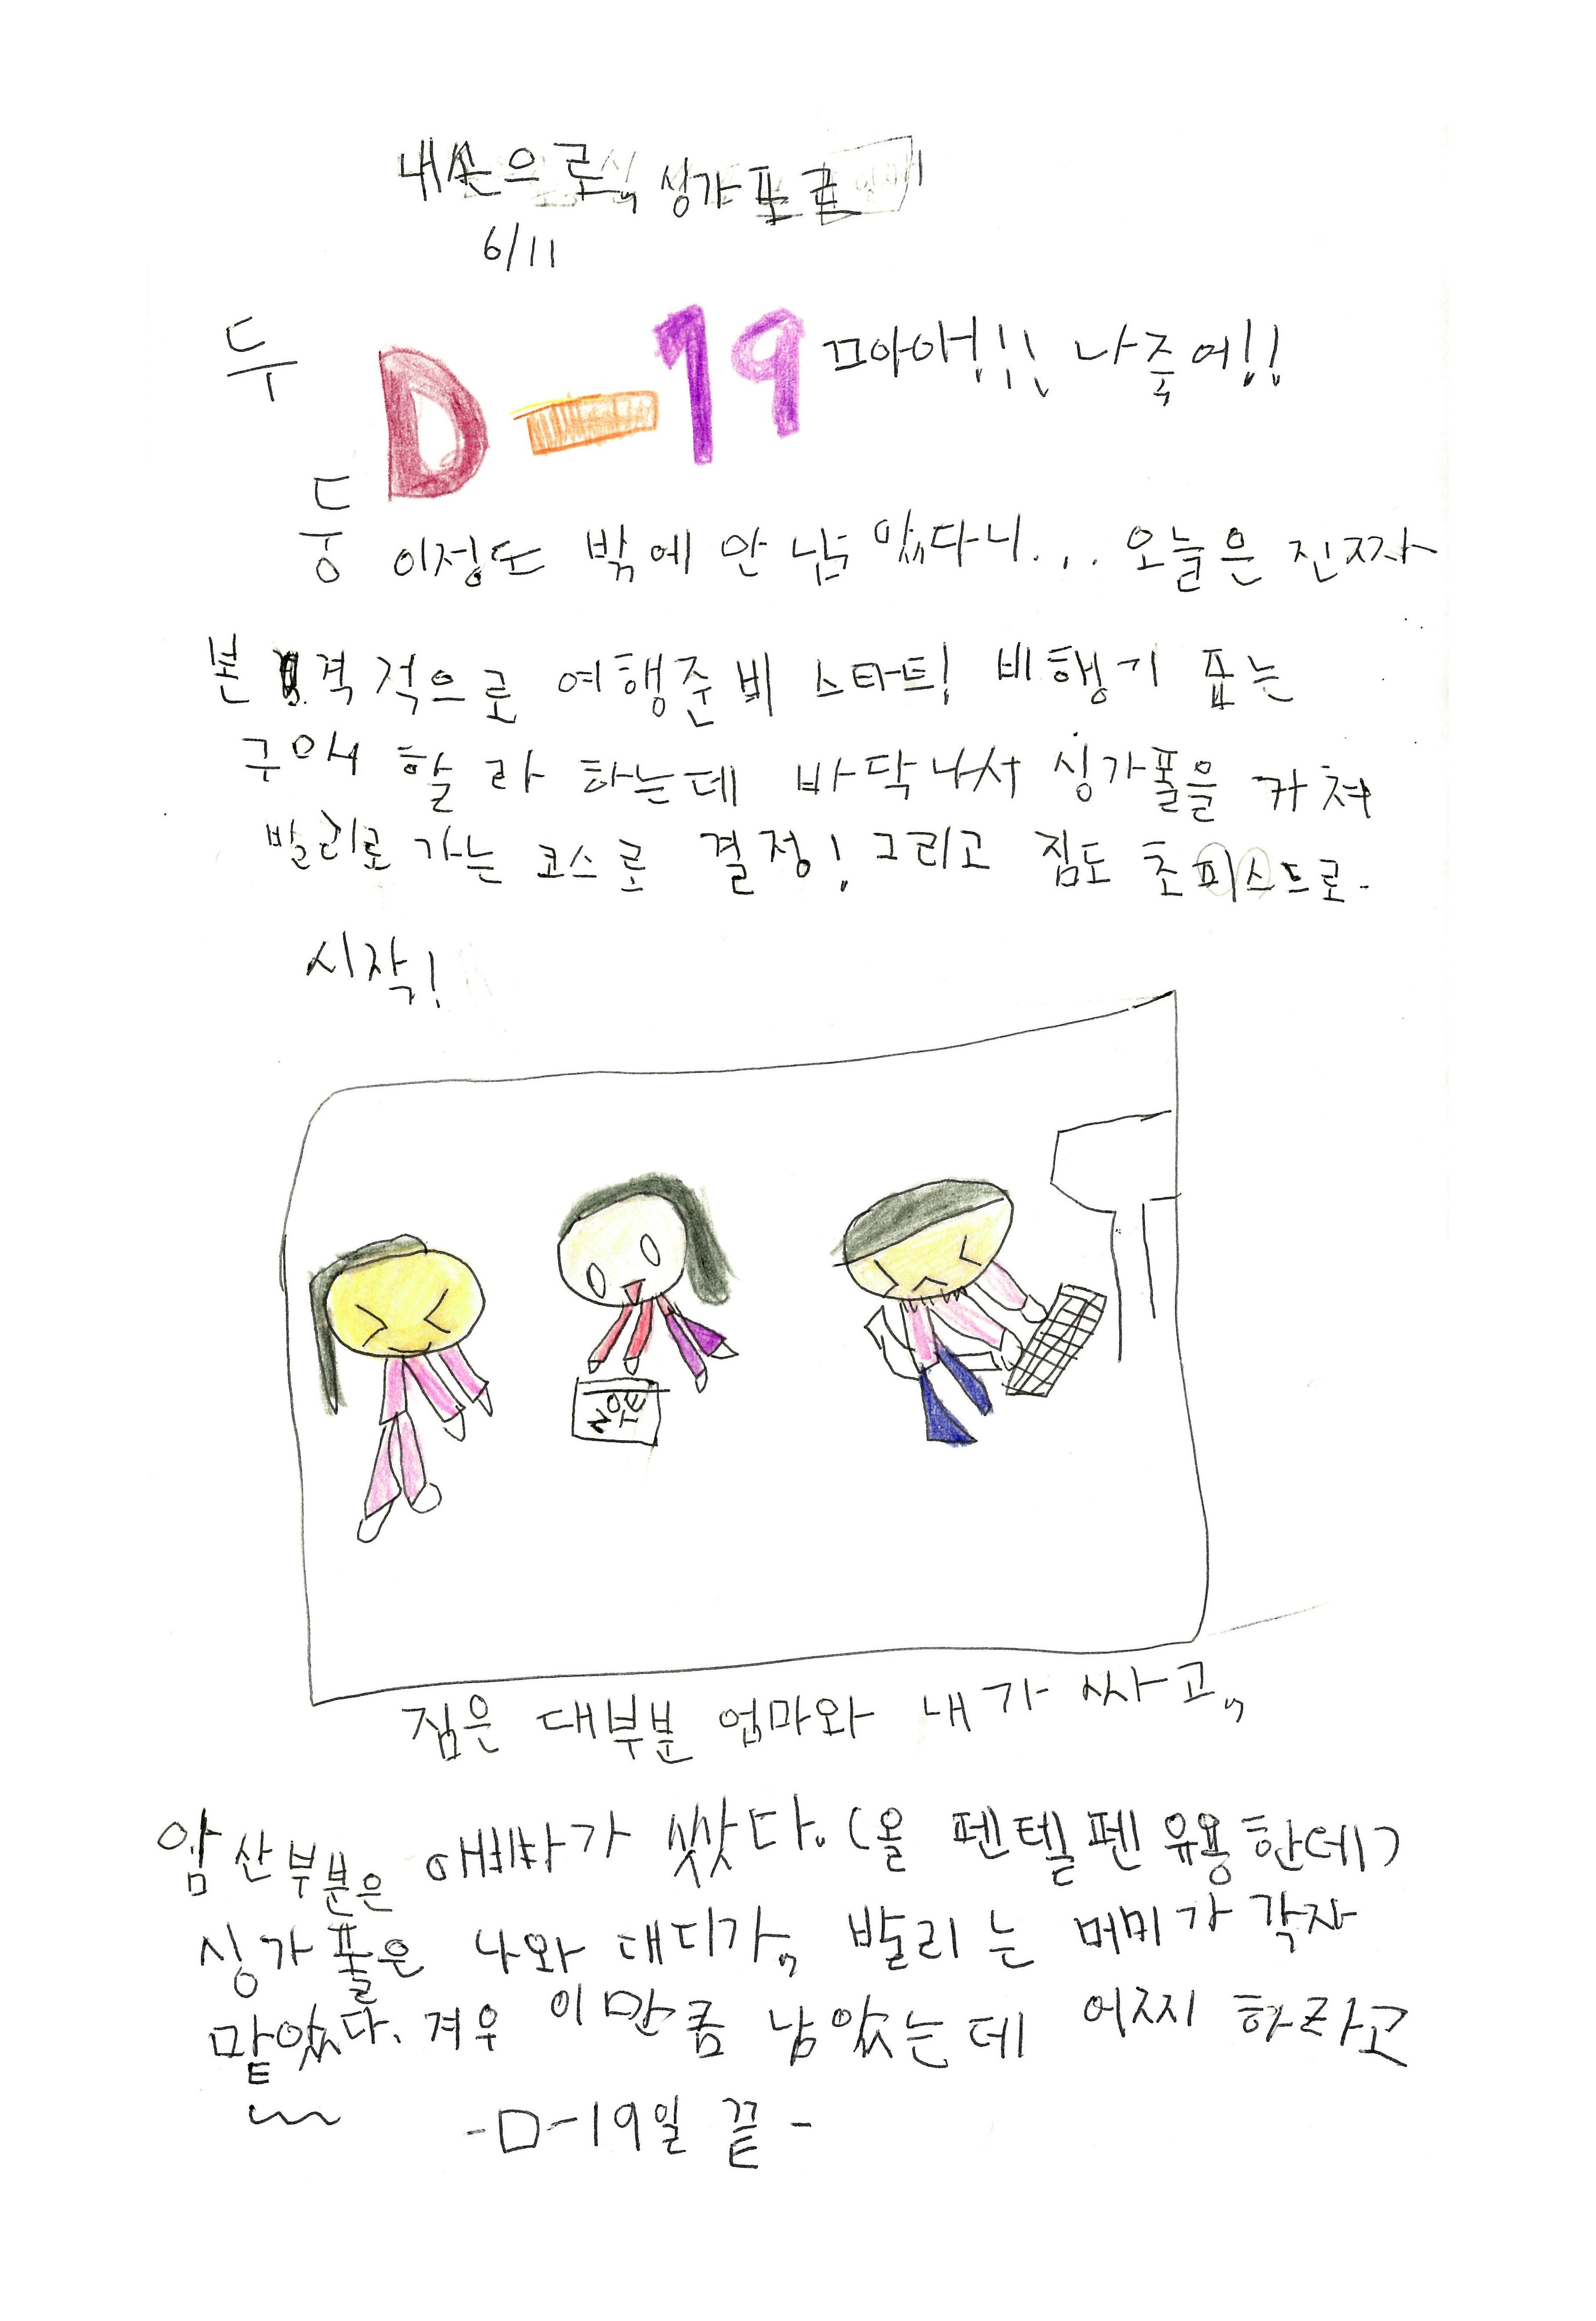 내손으로,, 싱가포르
6/11
두둥 D-19 끄아아!!! 나죽어!!
이정도 밖에 안 남았다니... 오늘은 진짜
본격적으로 여행준비 스타트! 비행기 표는
구매 할라 하는데 바닥나서 싱가폴을 카쳐
발리로 가는 코스로 결정! 그리고 짐도 초피스드로
시작!
NOTE
짐은 대부분 엄마와 내가 싸고,,
암산부분은 아빠가 쌋다. (올 펜텔펜 유용한데)
싱가폴은 나와 대디가,, 발리는 머미가 각자
맡았다. 겨우 이만큼 남았는데 어찌 하라고
-D-19일 끝-